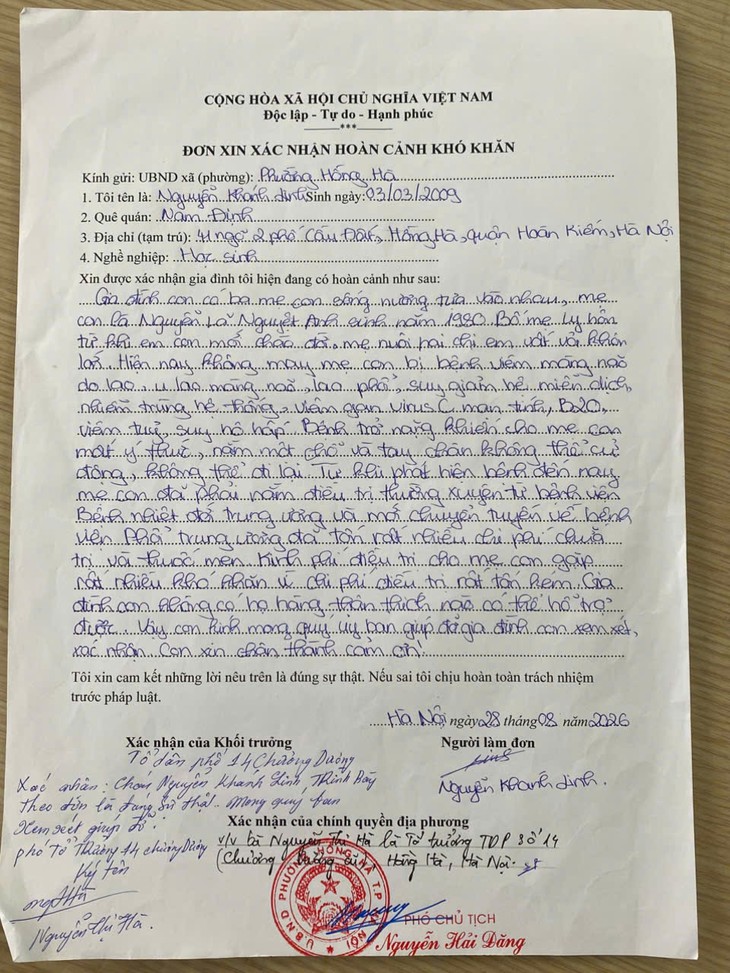 CỘNG HÒA XÃ HỘI CHỦ NGHĨA VIỆT NAM
Độc lập - Tự do - Hạnh phúc
***
ĐƠN XIN XÁC NHẬN HOÀN CẢNH KHÓ KHĂN
Kính gửi: UBND xã (phường): Phường Hồng Hà
1. Tôi tên là: Nguyễn Khánh Linh Sinh ngày: 03/03/2009
2. Quê quán: Nam Định
3. Địa chỉ (tạm trú): 41 ngõ 2 phố Cầu Đất, Hồng Hà, quận Hoàn Kiếm, Hà Nội
4. Nghề nghiệp: Học sinh
Xin được xác nhận gia đình tôi hiện đang có hoàn cảnh như sau:
Gia đình con có ba mẹ con sống nương tựa vào nhau, mẹ
con là Nguyễn Lã Nguyệt Anh sinh năm 1980. Bố mẹ ly hôn
từ khi em con mới chào đời, mẹ nuôi hai chị em vất vả khôn
lớn. Hiện nay không may mẹ con bị bệnh viêm màng não
do lao, u lao màng não, lao phổi, suy giảm hệ miễn dịch,
nhiễm trùng hệ thống, viêm gan virus C mạn tính, B20,
viêm tuỷ, suy hô hấp. Bệnh trở nặng khiến cho mẹ con
mất ý thức, nằm một chỗ và tay chân không thể cử
động, không thể đi lại. Từ khi phát hiện bệnh đến nay
mẹ con đã phải nằm điều trị thường xuyên từ bệnh viện
Bệnh nhiệt đới trung ương và mới chuyển tuyến về bệnh
viện Phổi trung ương đã tốn rất nhiều chi phí chữa
trị và thuốc men. Kinh phí điều trị cho mẹ con gặp
rất nhiều khó khăn vì chi phí điều trị rất tốn kém. Gia
đình con không có họ hàng thân thích nào có thể hỗ trợ
được. Vậy con kính mong quý ủy ban giúp đỡ gia đình con xem xét,
xác nhận. Con xin chân thành cảm ơn!
Tôi xin cam kết những lời nêu trên là đúng sự thật. Nếu sai tôi chịu hoàn toàn trách nhiệm
trước pháp luật.
Hà Nội ngày 28 tháng 08 năm 2026
Xác nhận của Khối trưởng
Người làm đơn
Tổ dân phố 14 Chương Dương
Xác nhận: Cháu Nguyễn Khánh Linh Trình Bày
Theo đơn là đúng sự thật. Mong quý ban
Xem xét giúp đỡ.
phó Tổ Trưởng 14 chương Dương
Ký tên
Nguyễn Thị Hà.
Linh
Nguyễn Khánh Linh.
Xác nhận của chính quyền địa phương
v/v bà Nguyễn Thị Hà là Tổ trưởng TDP số 14
(Chương Dương cũ), Hồng Hà, Hà Nội.
U.B.N.D PHƯỜNG HỒNG HÀ T.P HÀ NỘI
PHÓ CHỦ TỊCH
Nguyễn Hải Đăng